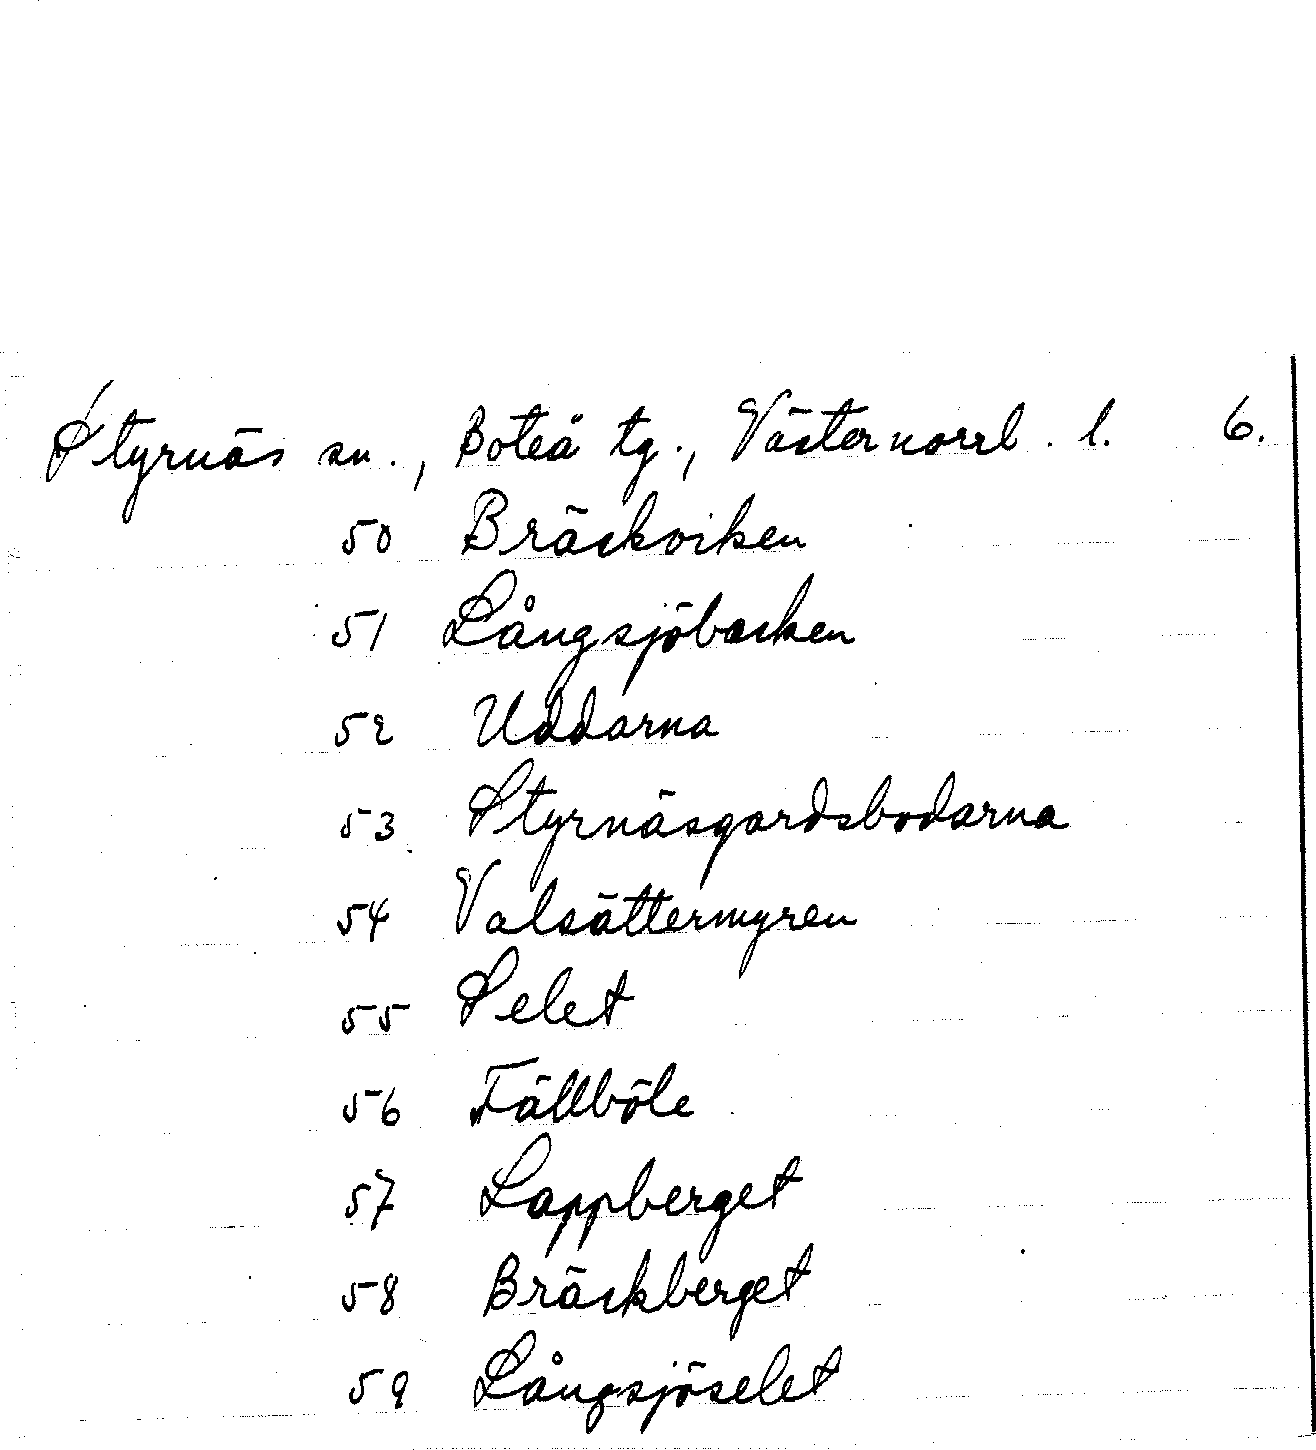 Styrnäs sn., Boteå tg., Västernorrl. l. 6.
50 Bräckviken
51 Långsjöbacken
52 Uddarna
53 Styrnäsgardsbodarna
54 Valsättermyren
55 Selet
56 Fällböle
57 Lappberget
58 Bräckberget
59 Långsjöselet